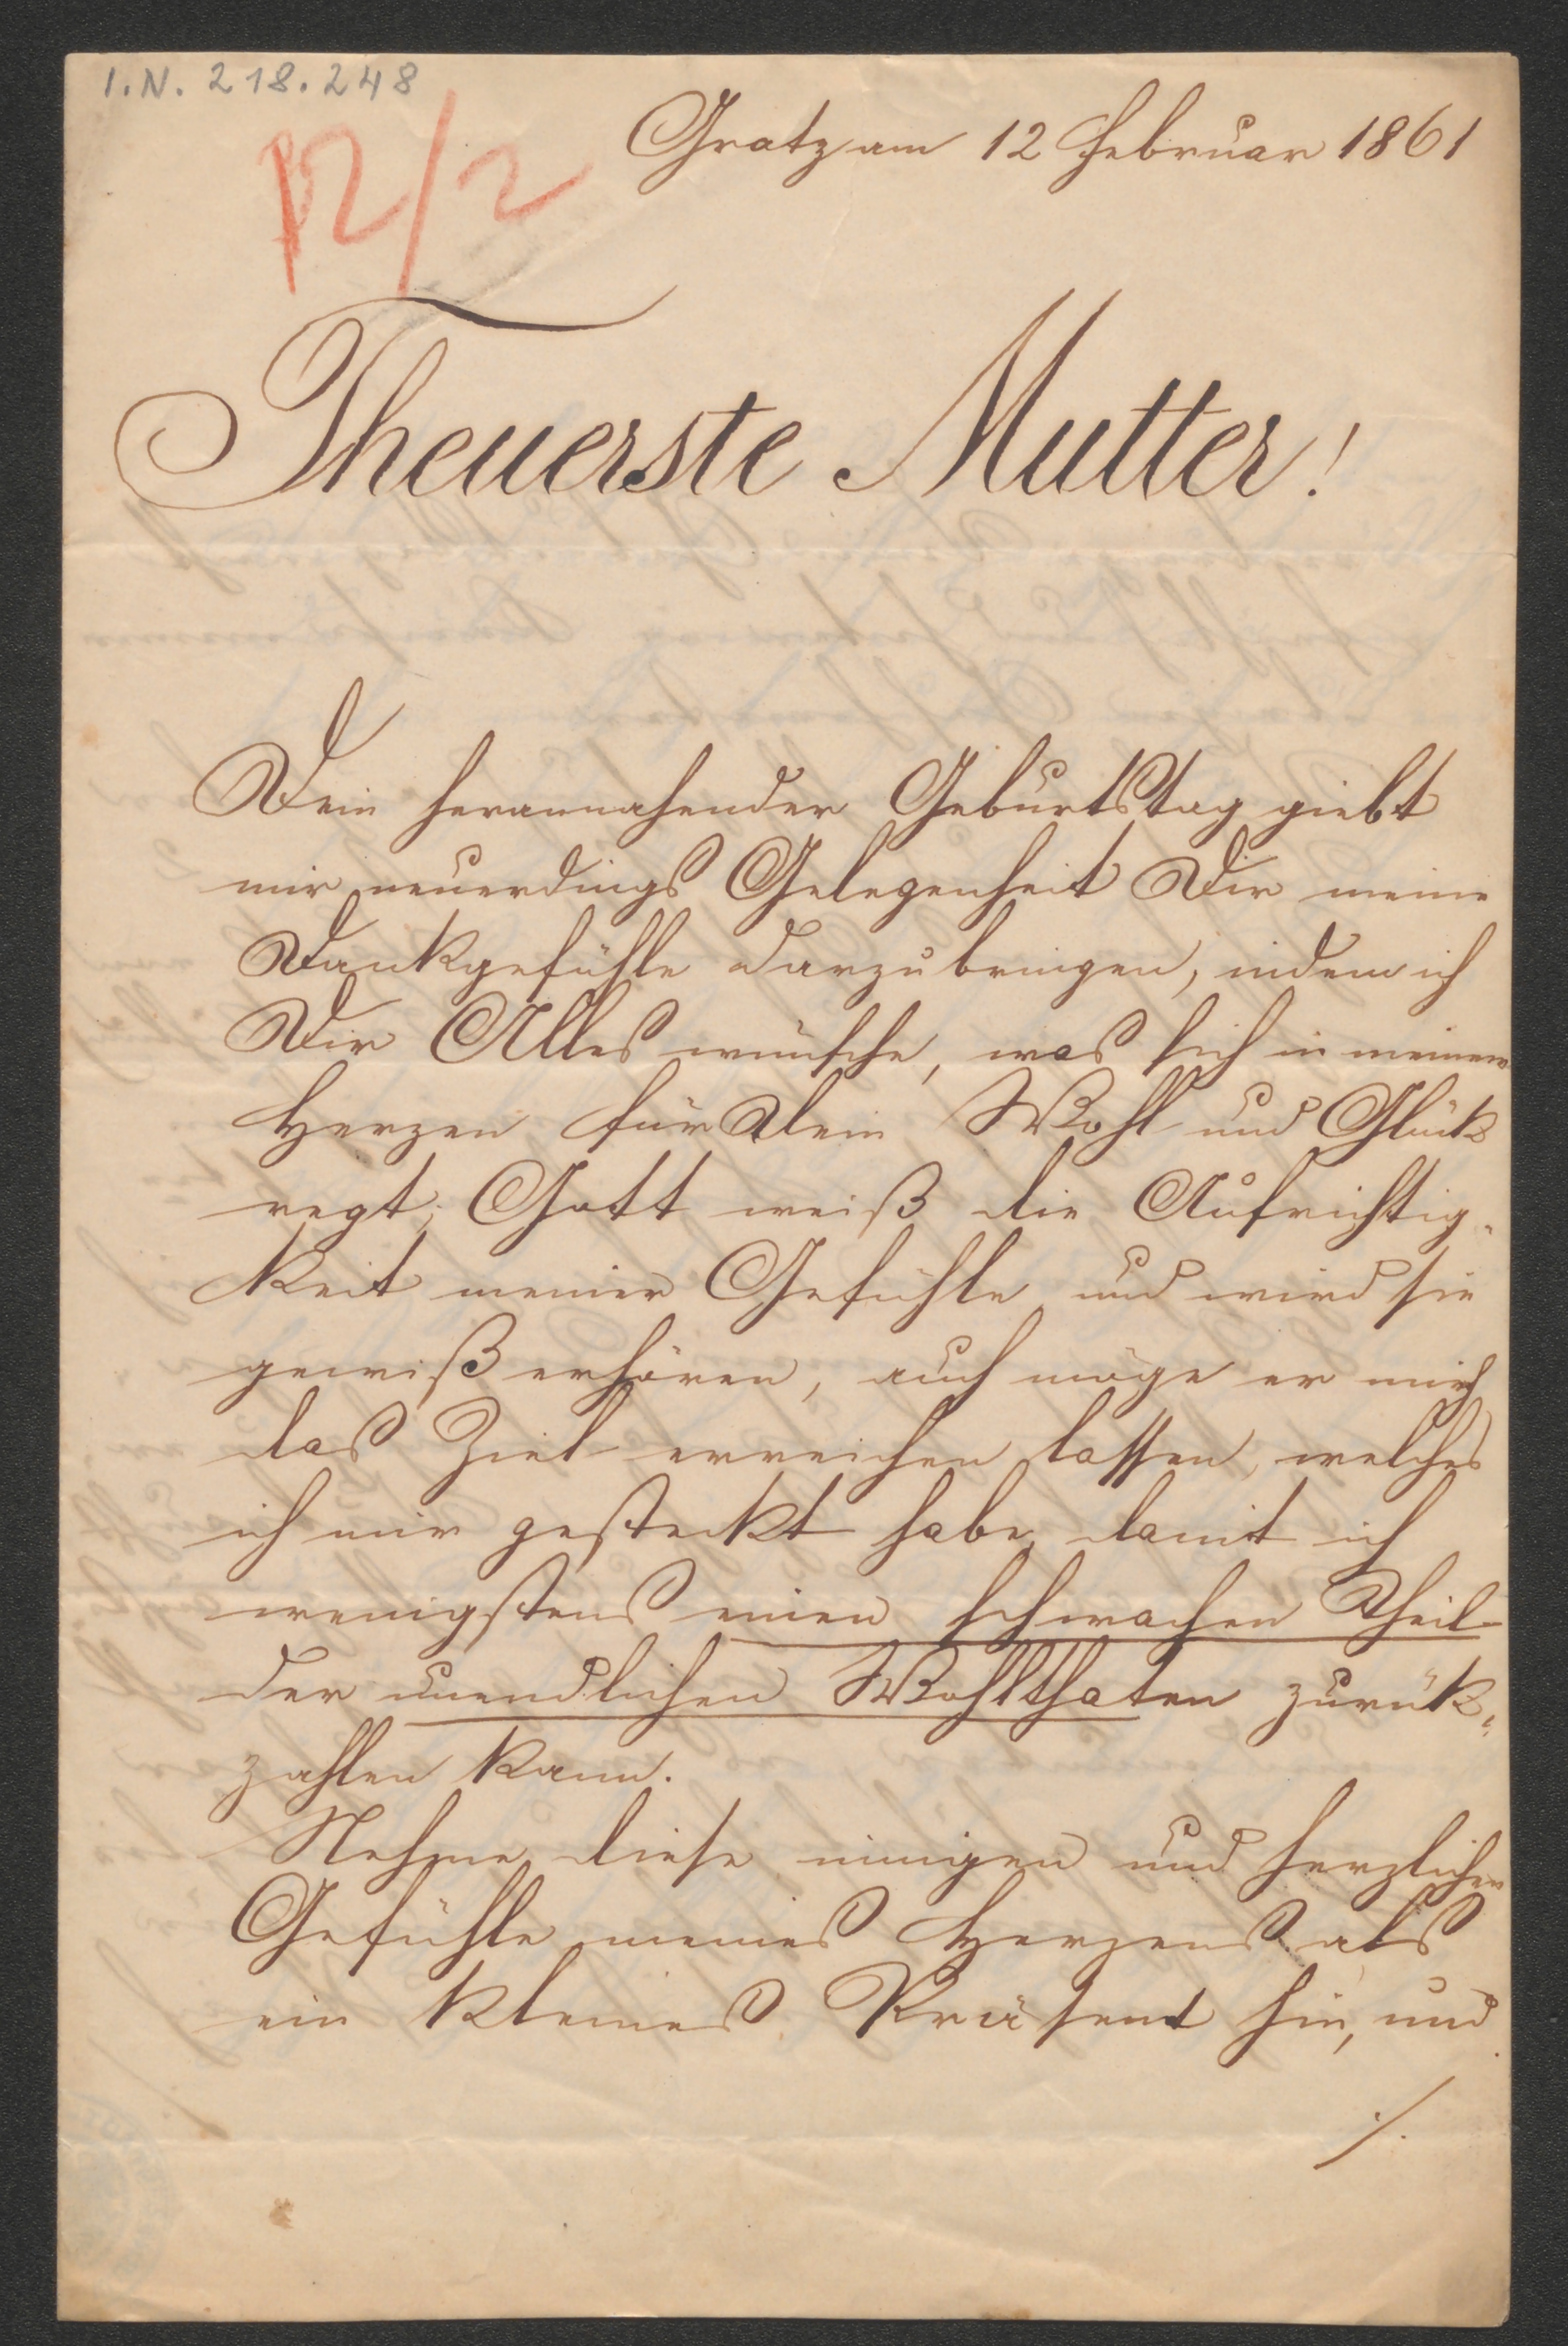 I.N. 218.248
12/2
Gratz am 12 Februar 1861
Theuerste Mutter!
Dein herannahender Geburtstag giebt
mir neuerdings Gelegenheit Dir meine
Dankgefühle darzubringen, indem ich
Dir Alles wünsche, was sich in meinem
Herzen für Dein Wohl und Glück
regt; Gott weiß die Aufrichtig-
keit meiner Gefühle und wird sie
gewiß erhören, auch möge er mich
das Ziel erreichen lassen, welches
ich mir gesteckt habe, damit ich
wenigstens einen schwachen Theil
der unendlichen Wohlthaten zurük-
zahlen kann.
Nehme diese innigen und herzlichen
Gefühle meines Herzens als
ein kleines Präsent hin, und
./.